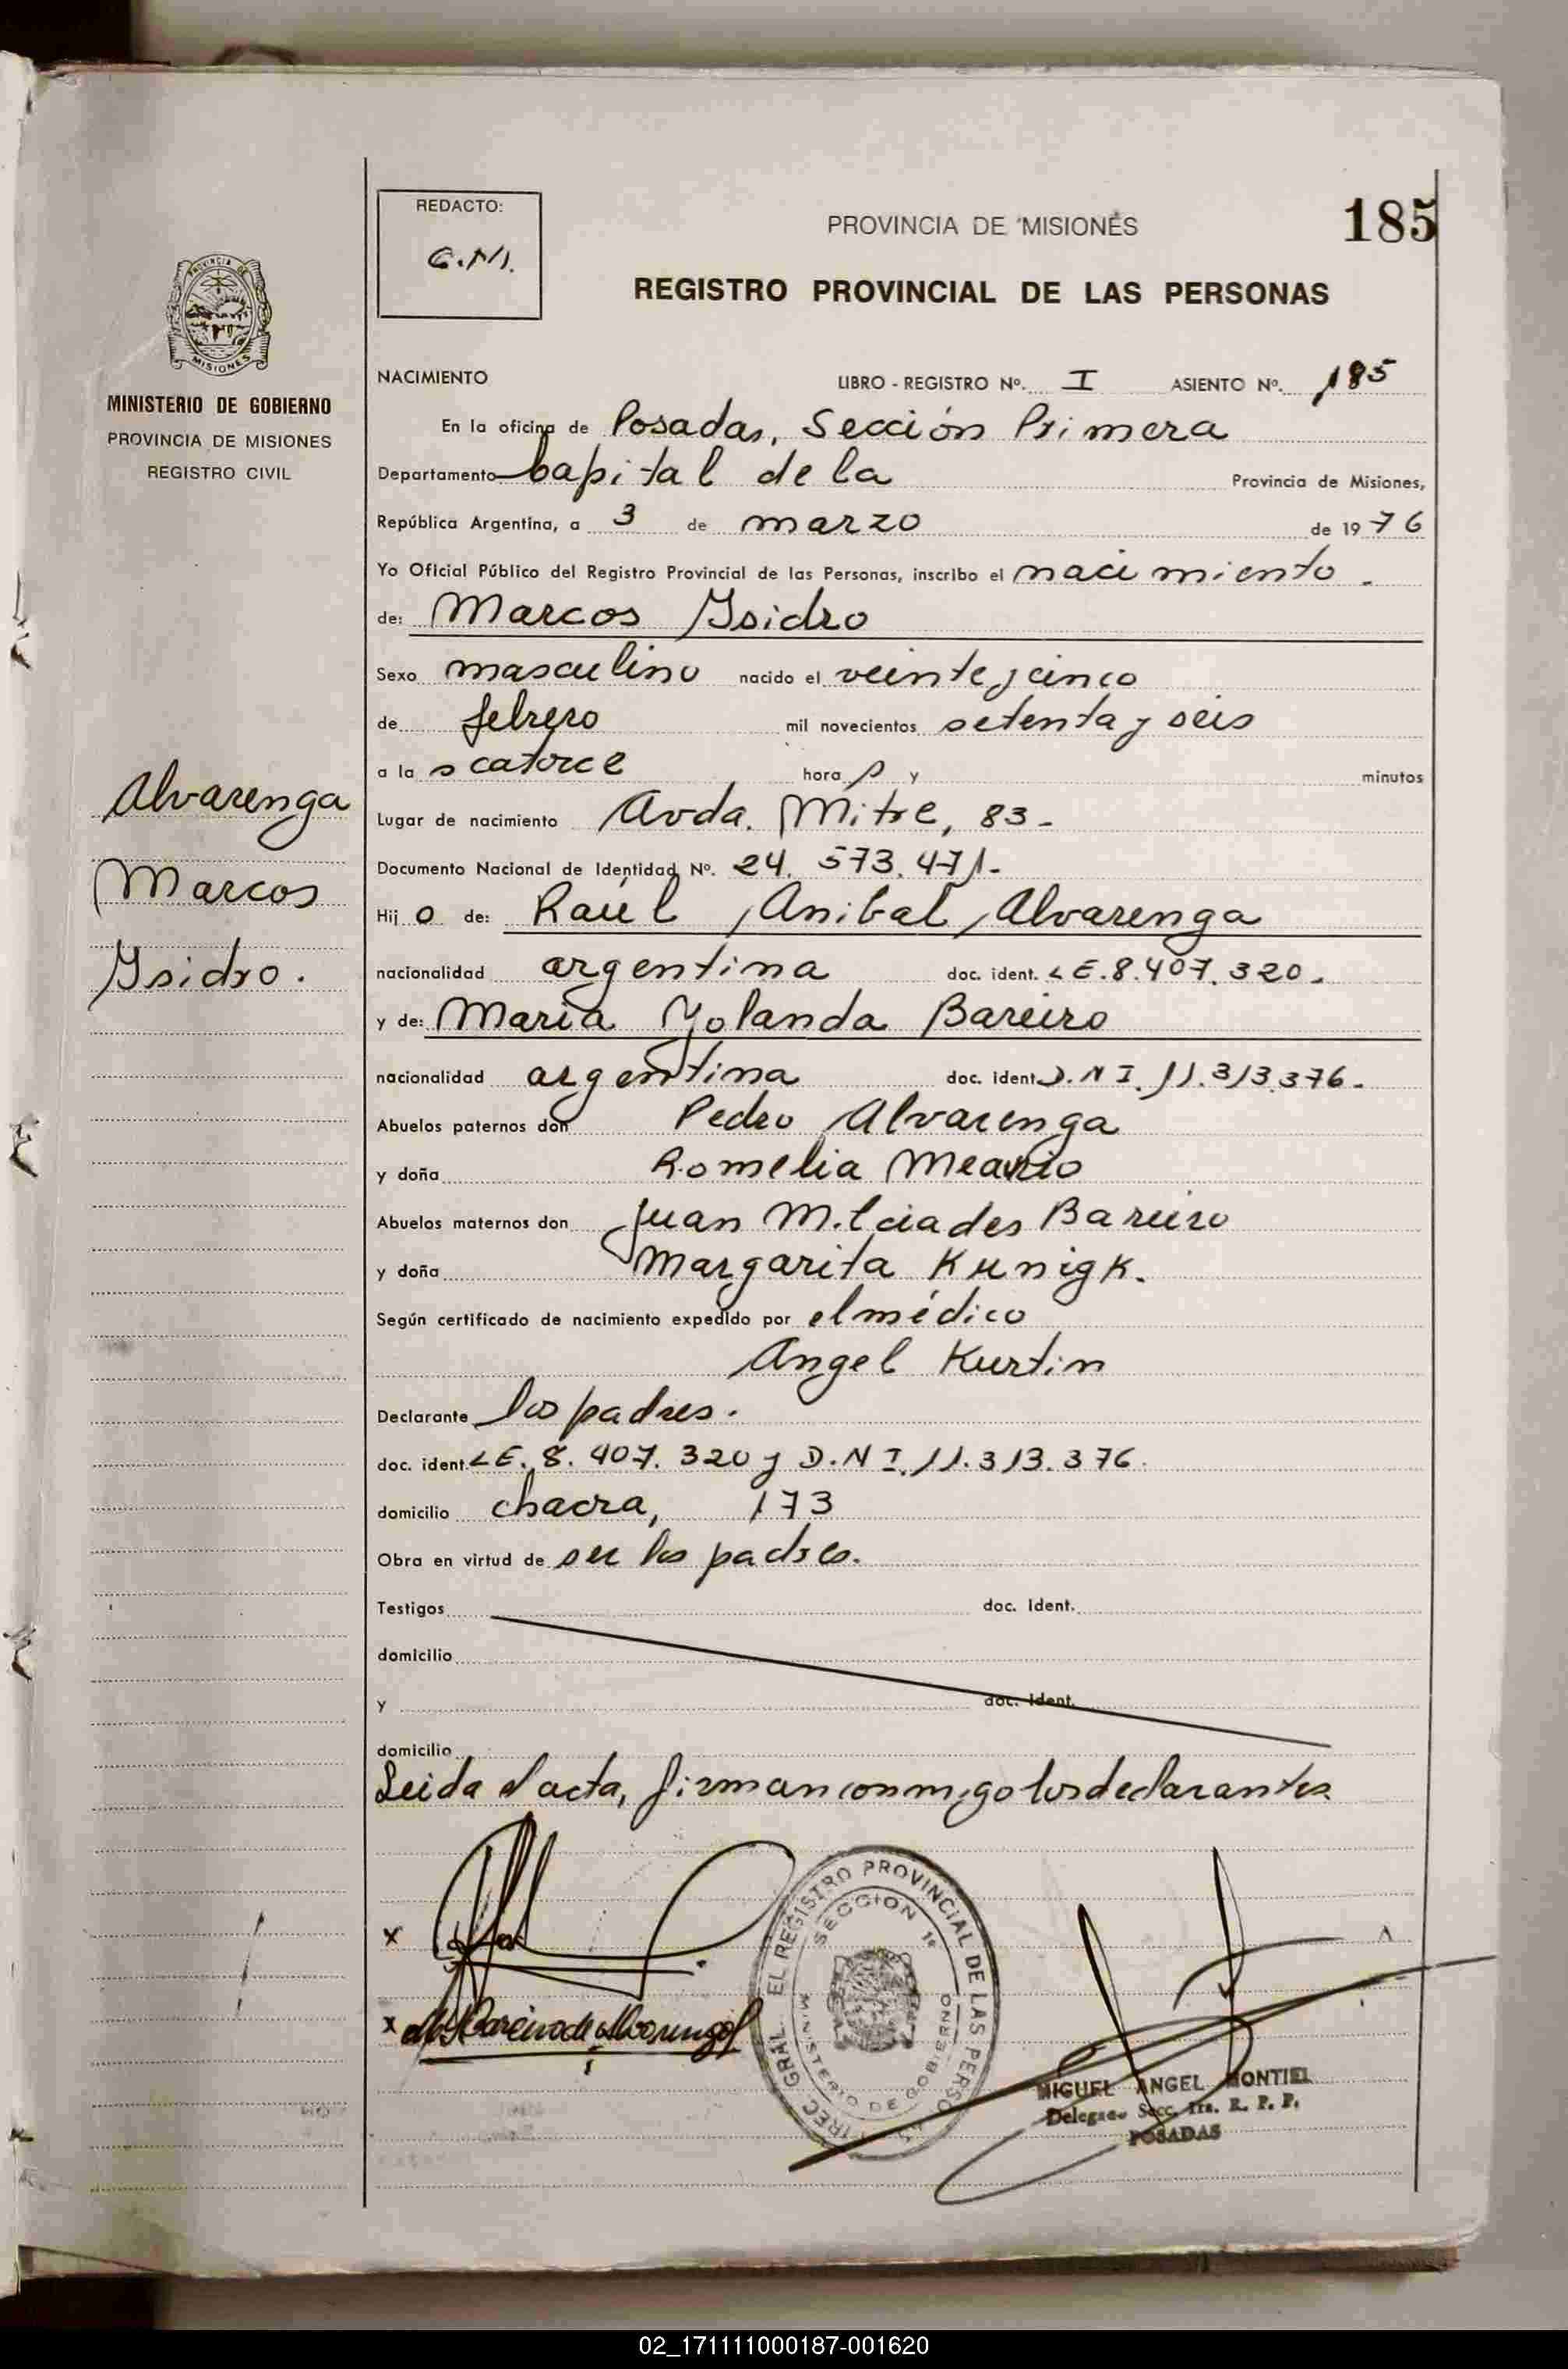 185
REDACTO:
G.M.
PROVINCIA DE MISIONES
REGISTRO PROVINCIAL DE LAS PERSONAS
PROVINCIA DE
MISIONES
MINISTERIO DE GOBIERNO
PROVINCIA DE MISIONES
REGISTRO CIVIL
Alvarenga
Marcos
Ysidro.
NACIMIENTO LIBRO - REGISTRO Nº. I ASIENTO Nº. 185
En la oficina de Posadas, Sección Primera
Departamento Capital de la Provincia de Misiones,
República Argentina, a 3 de marzo de 1976
Yo Oficial Público del Registro Provincial de las Personas, inscribo el nacimiento.
de: Marcos Ysidro
Sexo masculino nacido el veinte y cinco
de febrero mil novecientos setenta y seis
a la s catorce hora s y minutos
Lugar de nacimiento Avda. Mitre, 83-
Documento Nacional de Identidad Nº. 24.573.471-
Hij o de: Raúl Anibal Alvarenga
nacionalidad argentina doc. ident. LE.8.407.320-
y de: Maria Yolanda Bareiro
nacionalidad argentina doc. ident. D.N I. 11.313.376-
Abuelos paternos don Pedro Alvarenga
y doña Romelia
Abuelos maternos don Juan Milciades Bareiro
y doña Margarita Kunigk.
Según certificado de nacimiento expedido por el médico
Angel Kurtin
Declarante los padres.
doc. ident. LE. 8. 407. 320 y D.N I. 11.313.376.
domicilio chacra, 173
Obra en virtud de ser los padres.
Testigos doc. Ident.
domicilio
y doc. Ident.
domicilio
Leida el acta, firman conmigo los declarantes
x
x Bareiro de Alvarenga
EL REGISTRO PROVINCIAL DE LAS PERSO
SECCION 1ª
MINISTERIO DE GOBIERNO
IREC. GRAL.
MIGUEL ANGEL MONTIEL
Delegado Secc. 1ra. R. P. P.
POSADAS
02_171111000187-001620